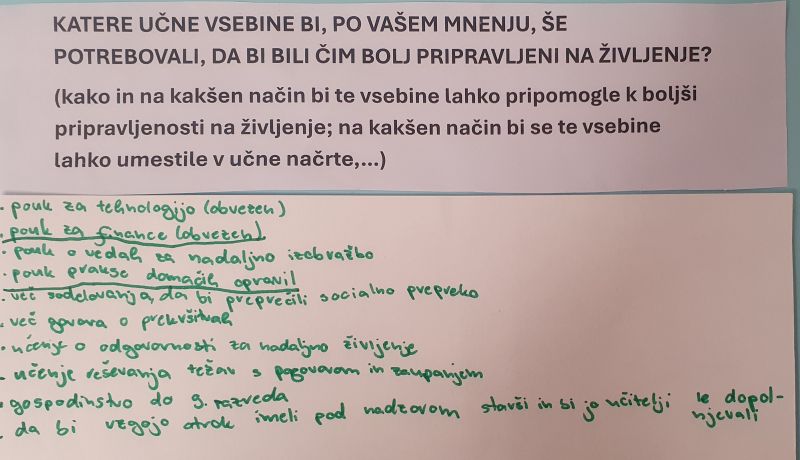 KATERE UČNE VSEBINE BI, PO VAŠEM MNENJU, ŠE
POTREBOVALI, DA BI BILI ČIM BOLJ PRIPRAVLJENI NA ŽIVLJENJE?
(kako in na kakšen način bi te vsebine lahko pripomogle k boljši
pripravljenosti na življenje; na kakšen način bi se te vsebine
lahko umestile v učne načrte,...)
· pouk za tehnologijo (obvezen)
· pouk za finance (obvezen)
· pouk o vedah za nadaljno izobražbo
· pouk prakse domačih opravil
· več sodelovanja, da bi preprečili socialno prepreko
· več govora o prekršitvah
· učenje o odgovornosti za nadaljno življenje
· učenje reševanja težav s pogovorom in zaupanjem
· gospodinstvo do 9. razreda
· da bi vzgojo otrok imeli pod nadzorom starši in bi jo učitelji le dopol-
njevali